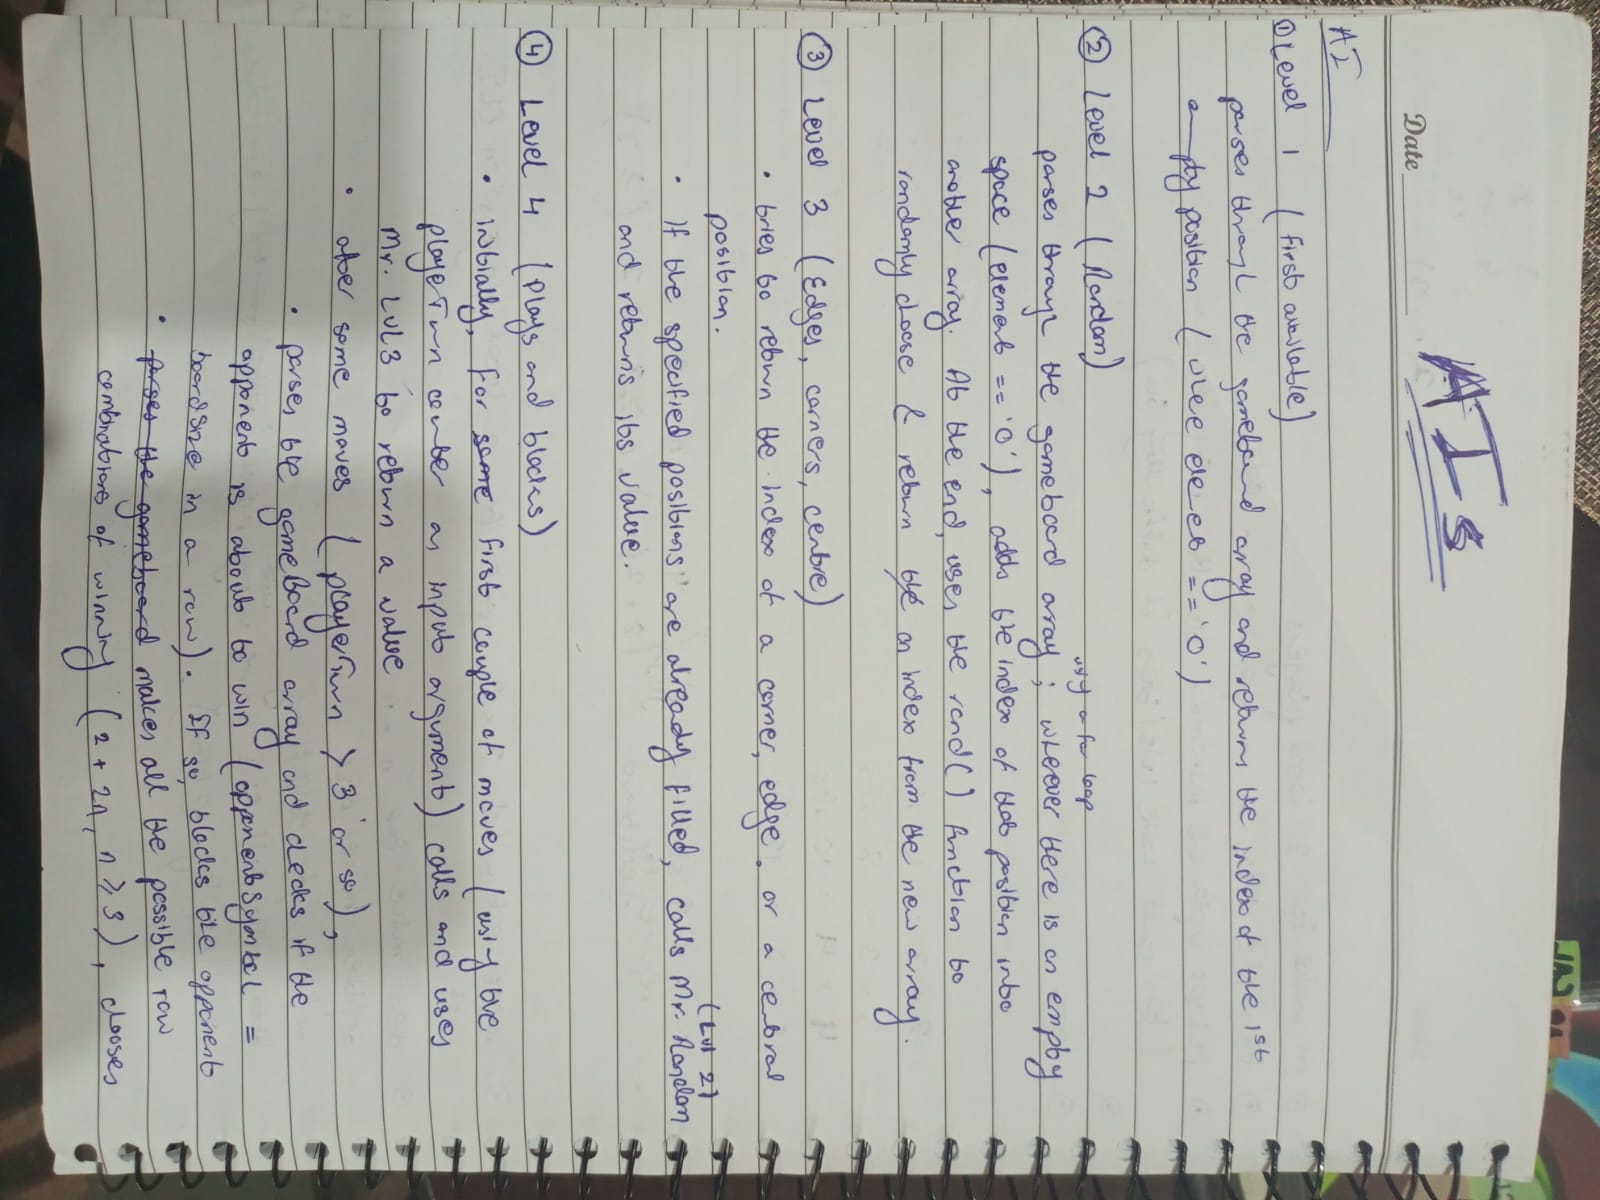 AIs
Date
AI
① Level 1 (first available)
parses through the gameboard array and returns the index of the 1st
empty position ( == '0')
② Level 2 (Random)
using a for loop
parses through the gameboard array ; wherever there is an empty
space (element == '0'), adds the index of that position into
another array. At the end, uses the rand() function to
randomly choose & return the an index from the new array.
③ Level 3 (Edges, corners, centre)
• tries to return the index of a corner, edge, or a central
position.
(Lvl 2)
• If the specified positions are already filled, calls Mr. Random
and returns its value.
④ Level 4 (plays and blocks)
• initially, for some first couple of moves (using the
playerTurn counter as input argument) calls and uses
Mr. LVL3 to return a value
• after some moves ( playerTurn > 3 or so),
• parses the gameBoard array and checks if the
opponent is about to win (opponentSymbol =
boardSize in a row). If so, blocks the opponent
• parses the gameboard makes all the possible row
combinations of winning (2 + 2n, n ≥ 3), chooses